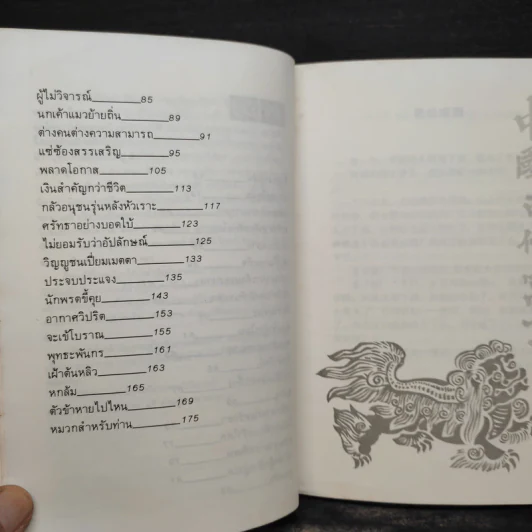 ผู้ไม่วิจารณ์ 85
นกเค้าแมวย้ายถิ่น 89
ต่างคนต่างความสามารถ 91
แซ่ซ้องสรรเสริญ 95
พลาดโอกาส 105
เงินสำคัญกว่าชีวิต 113
กลัวอนุชนรุ่นหลังหัวเราะ 117
ศรัทธาอย่างบอดใบ้ 123
ไม่ยอมรับว่าอัปลักษณ์ 125
วิญญูชนเปี่ยมเมตตา 133
ประจบประแจง 135
นักพรตขี้คุย 143
อากาศวิปริต 153
จะเข้โบราณ 155
พุทธะพันกร 161
เฝ้าต้นหลิว 163
หกล้ม 165
ตัวข้าหายไปไหน 169
หมวกสำหรับท่าน 175
中國